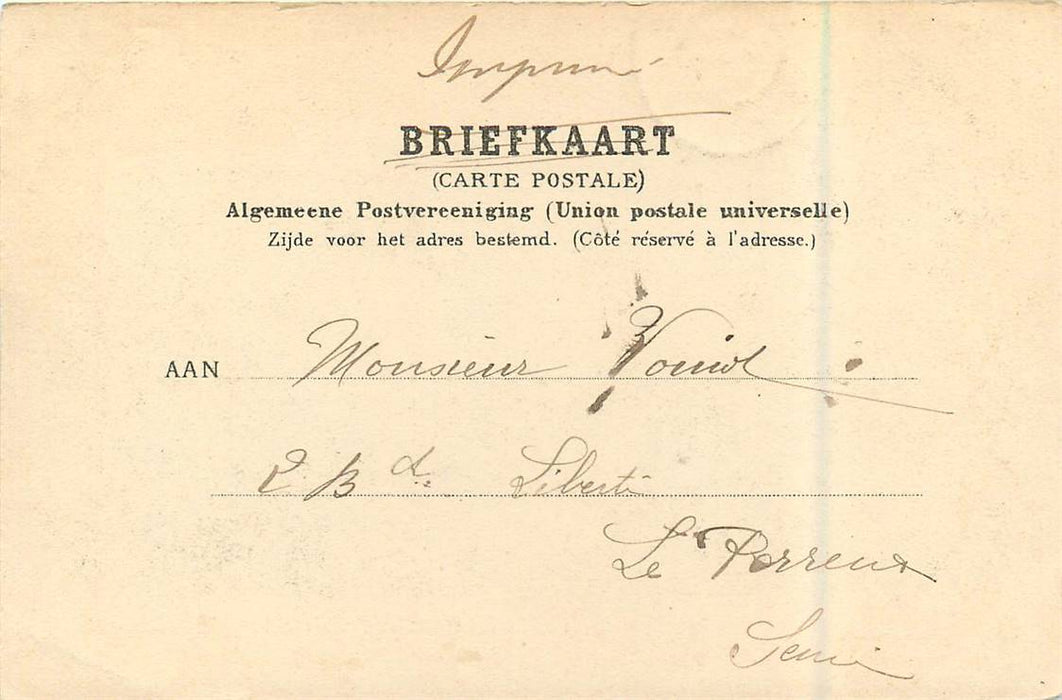 Imprimé
BRIEFKAART
(CARTE POSTALE)
Algemeene Postvereeniging (Union postale universelle)
Zijde voor het adres bestemd. (Côté réservé à l'adresse.)
AAN Monsieur Voinot
2 Bd. Liberté
Le Perreux
Seine